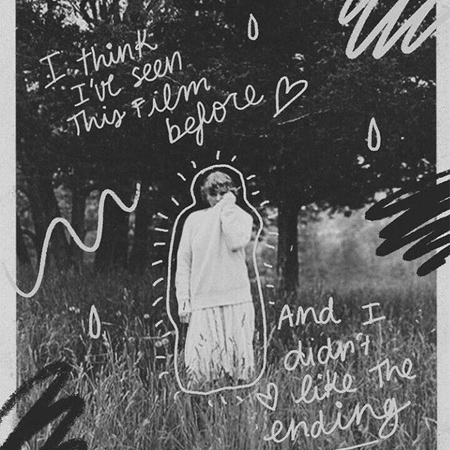 I think
I've seen
This Film
before
And I
didn't
like The
ending